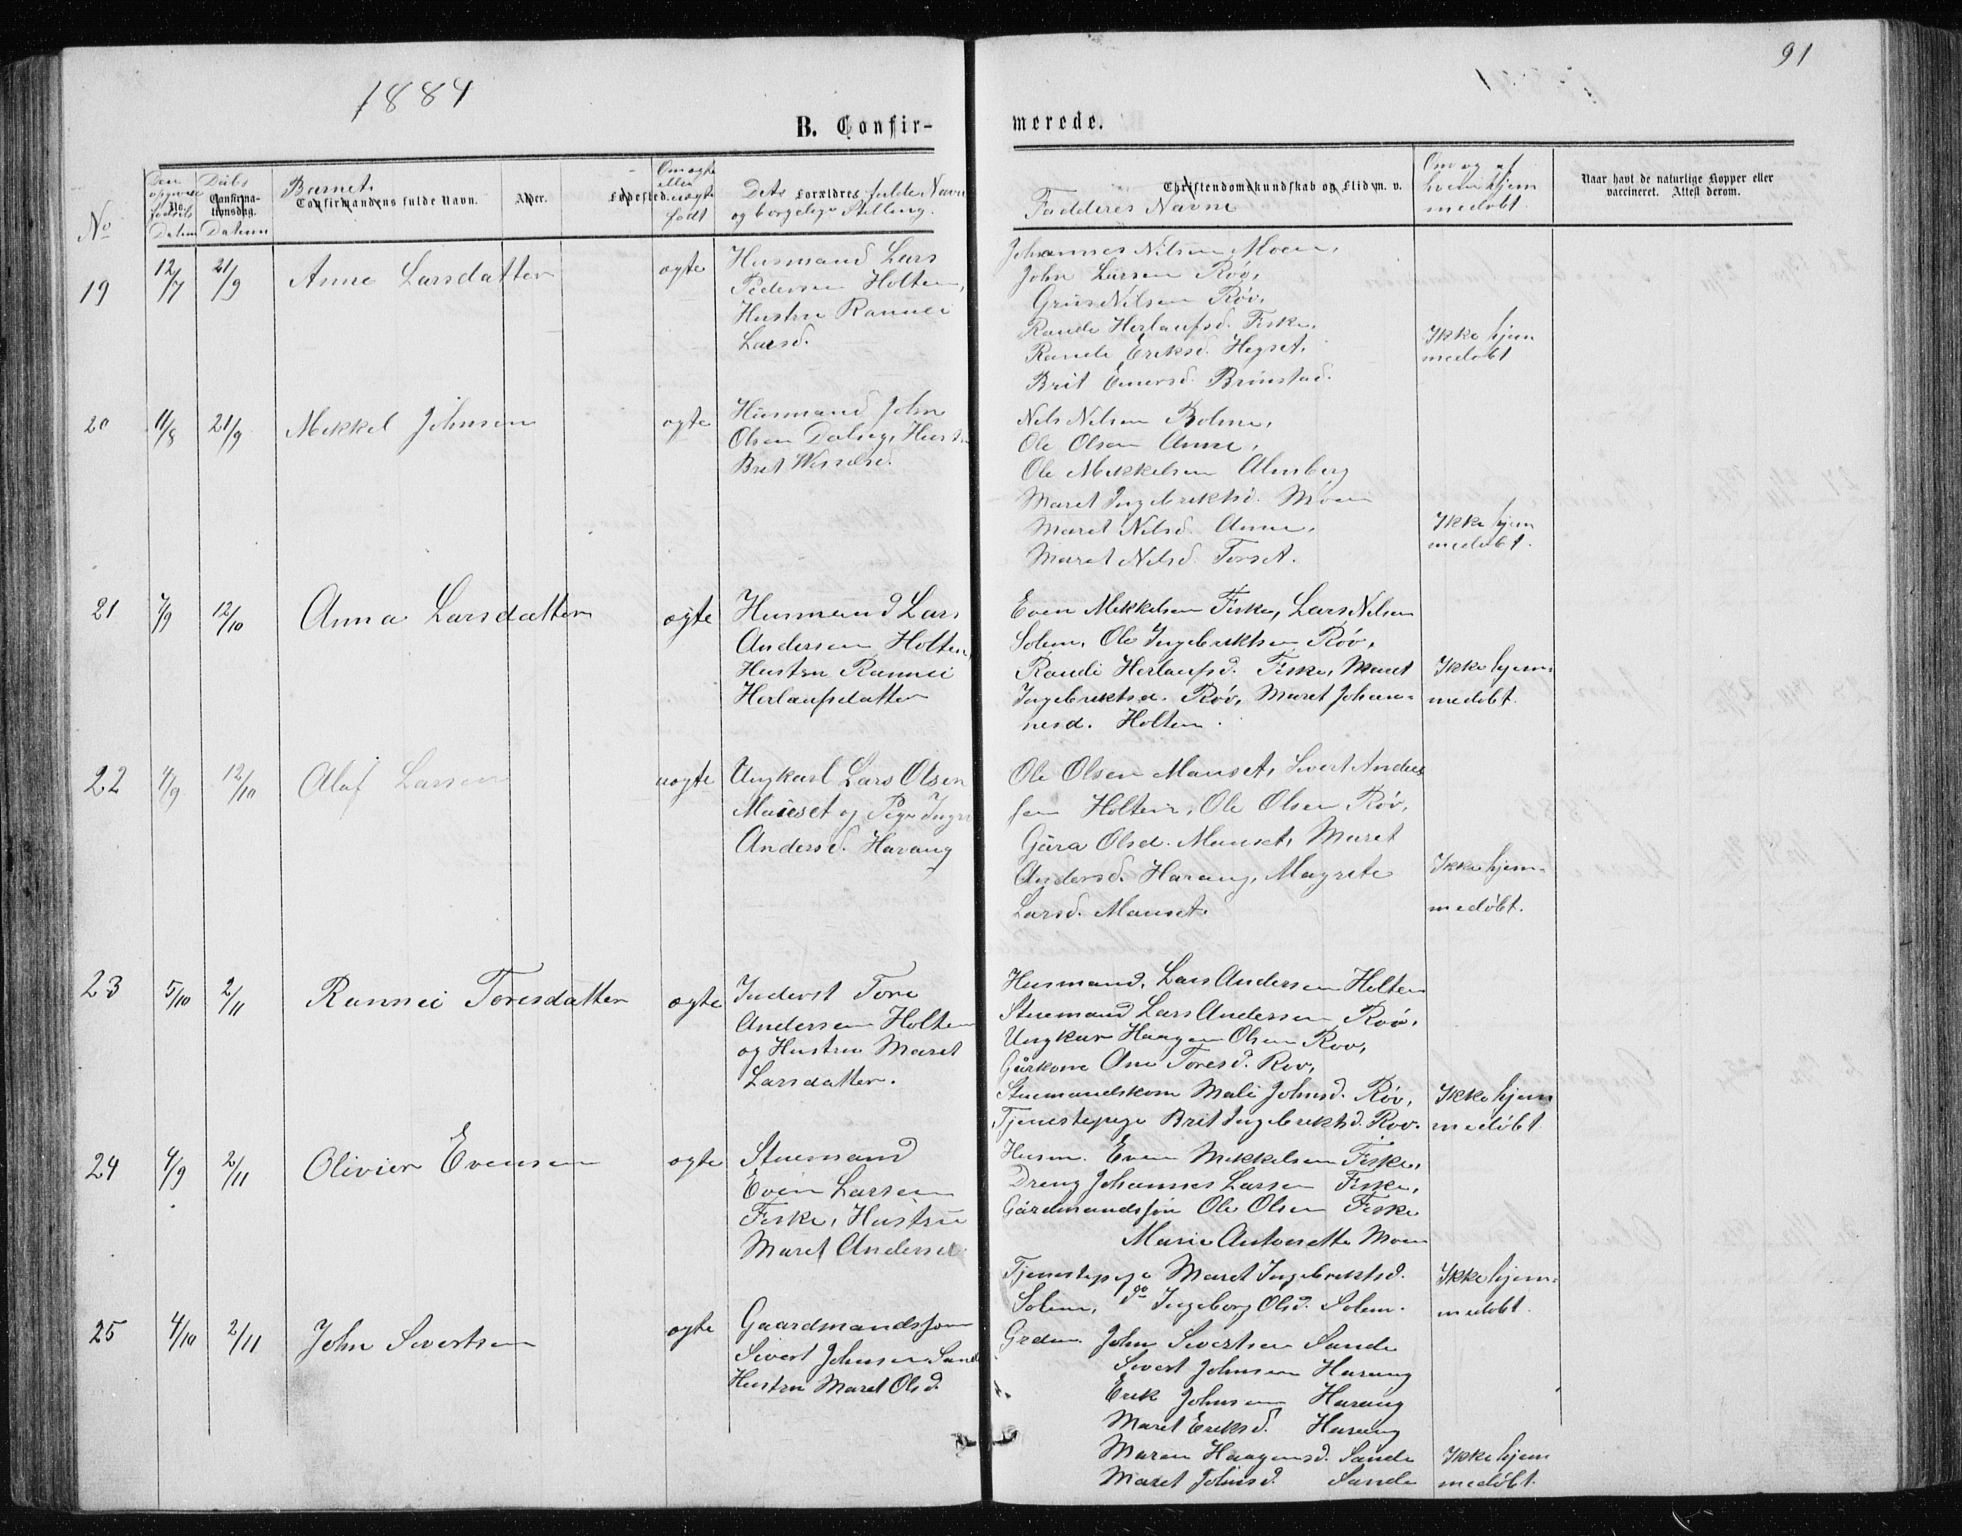 91
1884
B. Confir-
merede.
No
Den opgivne fødsels Datum
No.
Daabs Datum
Confirma-
tionsdag.
Barnets
Confirmandens fulde Navn.
Alder.
Fødested.
Om ægte eller uægte født
Dets Forældres fulde Navn
og borgelige Stilling.
Christendomskundskab og Flid m. v.
Fadderes Navne
Om og af
hvem hjem
medøbt.
Naar havt de naturlige Kopper eller
vaccineret. Attest derom.
19
12/7
21/9
Anne Larsdatter
ægte
Husmand Lars
Pedersen Holten,
Hustru Rannei
Larsd.
Johannes Nilsen Moen,
John Larsen Røv,
Nilsen Røv,
Randi Herlaufsd. Fiske,
Randi Eriksd. Hegset,
Brit Einersd.
Ikke hjem
medøbt
20
11/8
21/9
Mikkel Johnsen
ægte
Husmand John
Olsen
Brit
Nils Nilsen Bolme,
Ole Olsen
Ole Mikkelsen Almberg
Maret Ingebriktsd. Moen
Maret Nilsd.
Maret Nilsd. Torset.
Ikke hjem
medøbt.
21
7/9
12/10
Anna Larsdatter
ægte
Husmand Lars
Andersen Holten,
Hustru Rannei
Herlaufsdatter
Even Mikkelsen Fiske, Lars Nilsen
Solem, Ole Ingebriktsen Røv,
Randi Herlaufsd. Fiske, Maret
Ingebriktsd. Røv, Maret Johan-
nesd. Holten.
Ikke hjem-
medøbt.
22
4/9
12/10
Olaf Larsen
uægte
Ungkarl Lars Olsen
Mauset og Pige
Andersd. Harang
Ole Olsen Mauset, Sivert Ander
sen Holten, Ole Olsen Røv,
Olsd. Mauset, Maret
Andersd. Harang, Magrete
Larsd. Mauset.
Ikke hjem-
medøbt.
23
5/10
2/11
Rannei Toresdatter
ægte
Inderst Tore
Andersen Holten
og Hustru Maret
Larsdatter.
Husmand, Lars Andersen Holten
Stuemand Lars Andersen Røv,
Ungkar Haagen Olsen Røv,
Gårkone Toresd. Røv,
Stuemandskone Mali Johnsd. Røv,
Tjenestepige Brit Ingebriktsd. Røv.
Ikke hjem
medøbt
24
4/9
2/11
Olivier Evensen
ægte
Stuemand
Even Larsen
Fiske, Hustru
Maret Andersd.
Husm. Even Mikkelsen Fiske,
Dreng Johannes Larsen Fiske,
Gårdmandssøn Ole Olsen Fiske
Marie Antonette Moen
Tjenestepige Maret Ingebriktsd.
Solem, do Ingeborg Olsd. Solem.
Ikke hjem-
medøbt.
25
4/10
2/11
John Sivertsen
ægte
Gaardmandssøn
Sivert Johnsen Sande
Hustru Maret Olsd.
Grdm. John Sivertsen Sande
Sivert Johnsen Harang
Erik Johnsen Harang
Maret Eriksd. Harang
Maren Haagensd. Sande
Maret Johnsd. Sande
Ikke hjem
medøbt.